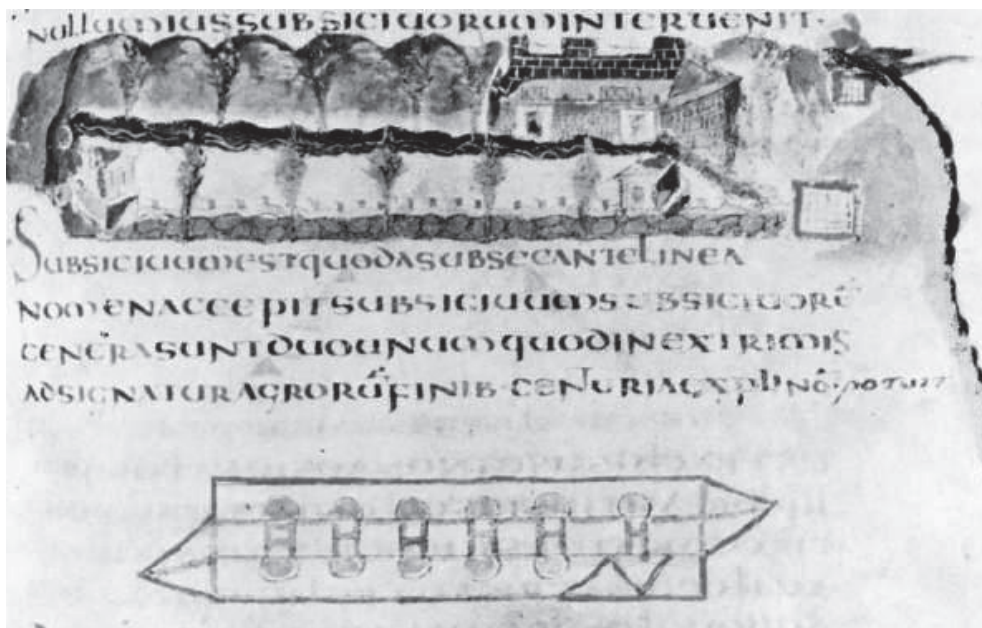 NULLUMIUSSUBSICIUORUMINTERUENIT·
SUBSICIUUMESTQUODASUBSECANTELINEA
NOMENACCEPITSUBSICIUUMSUBSICIUORŨ
GENERASUNTDUOUNUMQUODINEXTREMIS
ADSIGNATURAGRORŨFINIB·CENTURIAEXPLINÕ·POTUIT